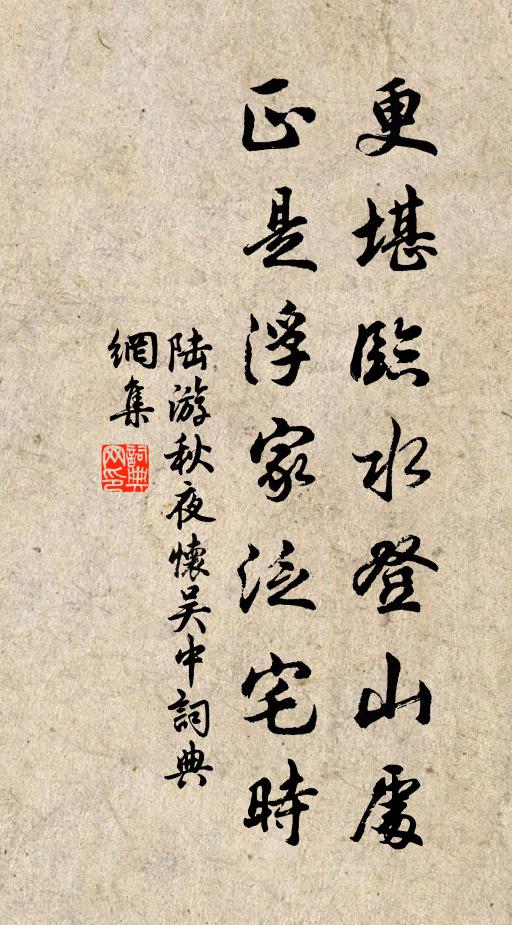 更堪臨水登山處
正是浮家泛宅時
陸游秋夜懷吴中詞典
網集
詞典
网印